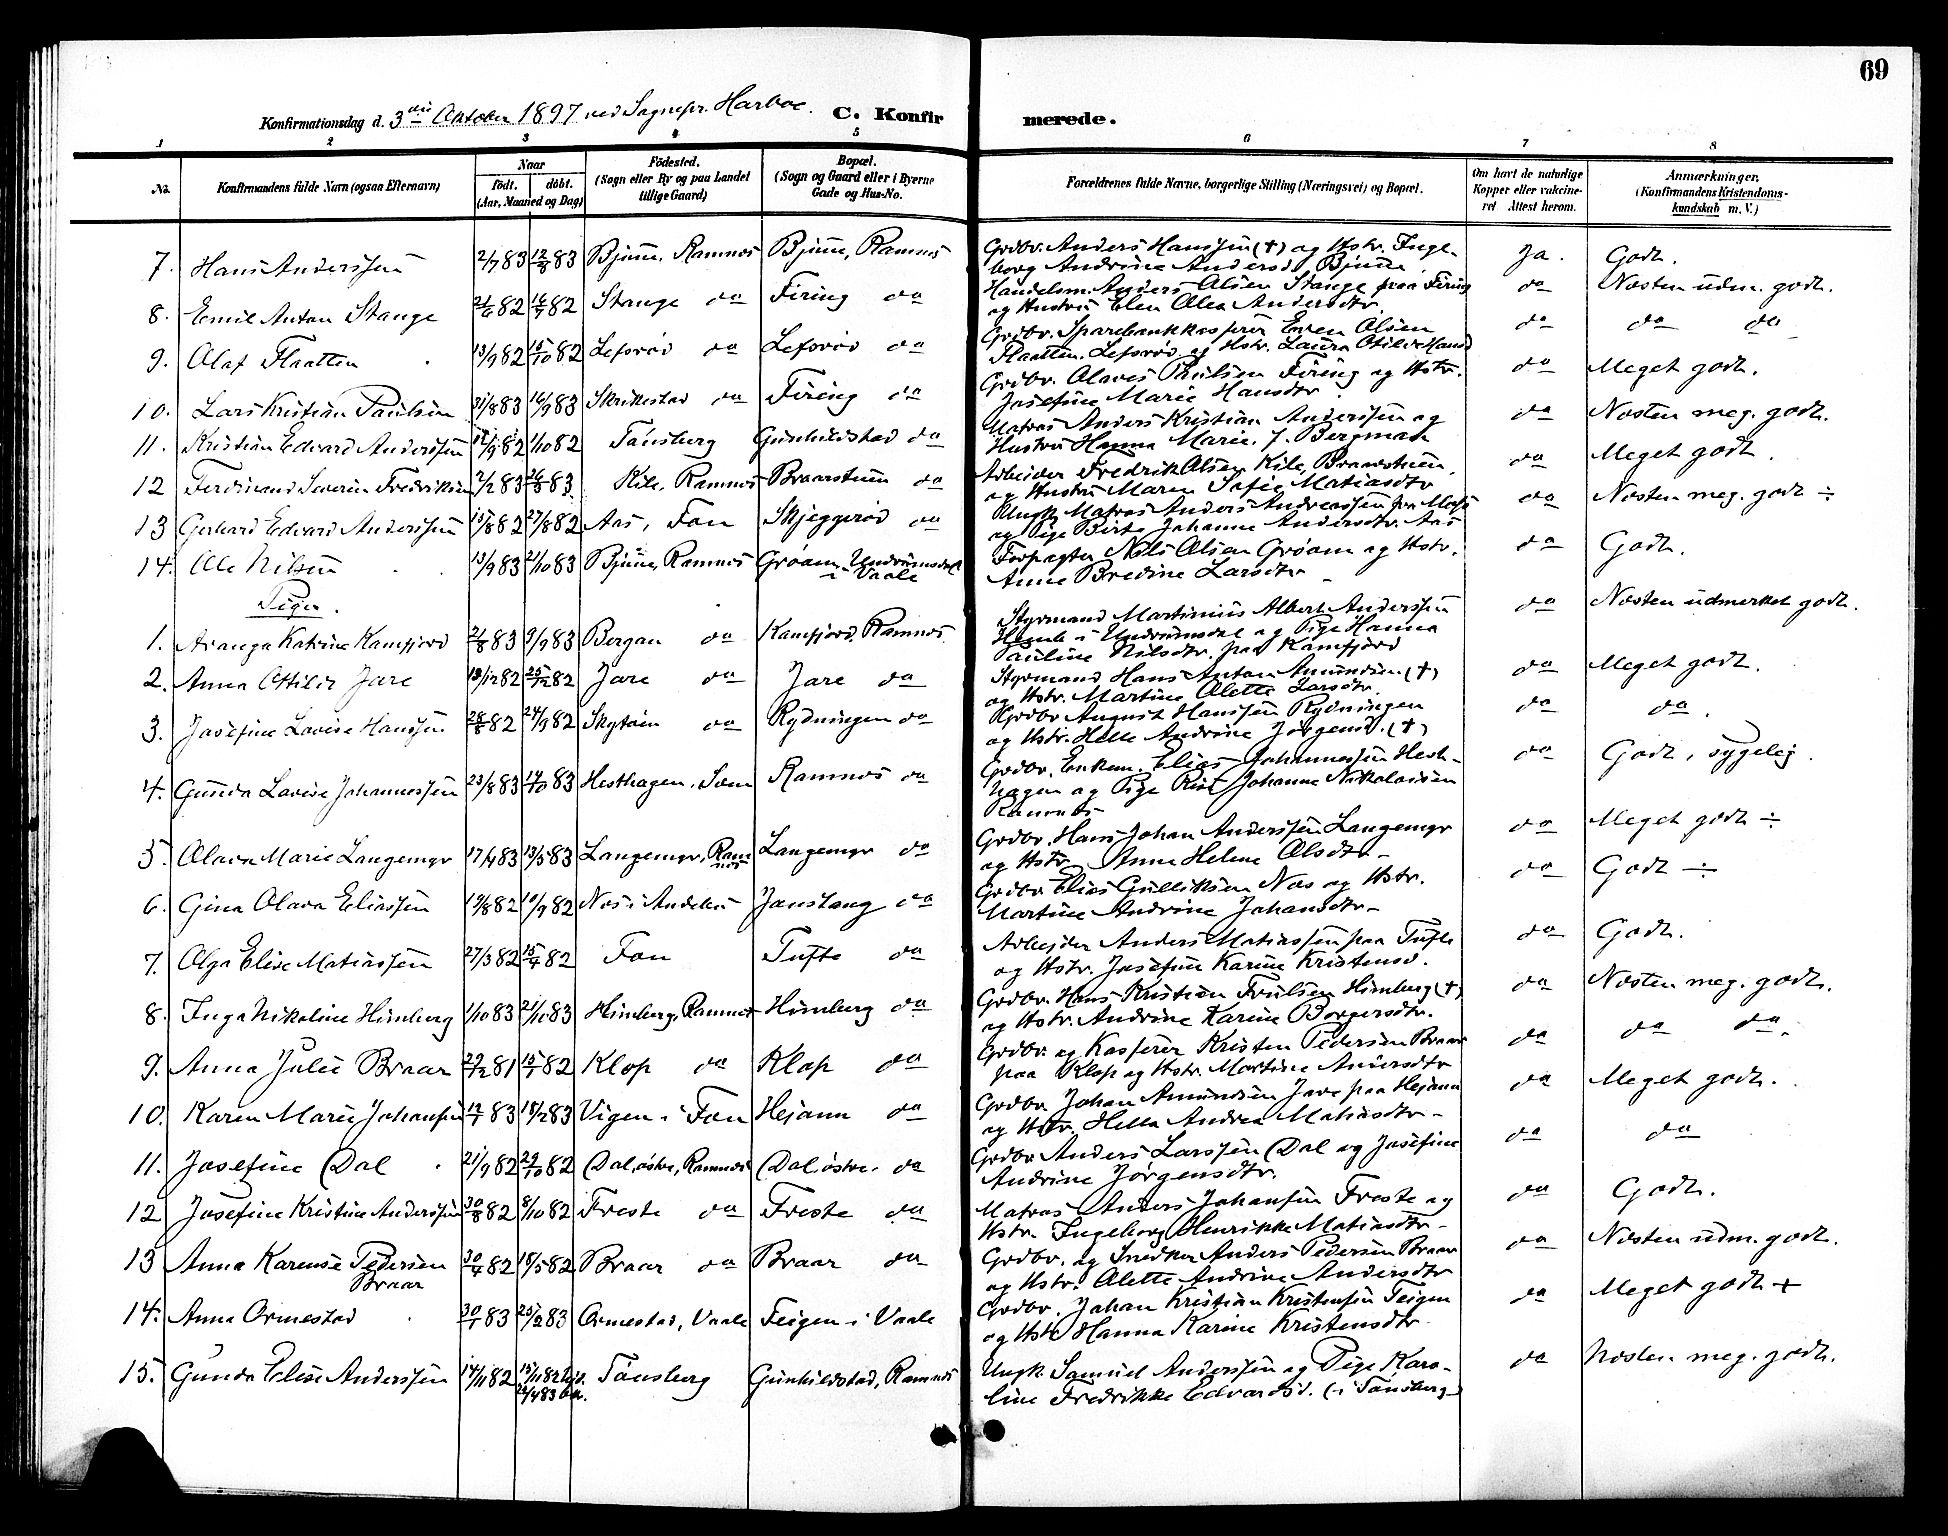 69
Konfirmationsdag d. 3die Oktober 1897 ved Sognepr. Harboe. C. Konfirmerede.
1 2 3 4 5 6 7 8
No. Konfirmandens fulde Navn (ogsaa Efternavn) Naar født. døbt. (Aar, Maaned og Dag) Födested. (Sogn eller By og paa Landet tillige Gaard) Bopæl. (Sogn og Gaard eller i Byerne Gade og Hus-No. Forældrenes fulde Navne, borgerlige Stilling (Næringsvei) og Bopæl. Om havt de naturlige Kopper eller vaccineret Attest herom. Anmærkninger. (Konfirmandens Kristendomskundskab m. V.)
7. Hans Anderssen 2/7 83 12/8 83 Bjune, Ramnes Bjune, Ramnes Grdbr. Anders Hanssen (†) og Hstr. Inge- Ja. Godt.
borg Andrine Andersd. Bjune
8. Emil Anton Stange 21/6 82 16/7 82 Stange do Firing do Handelsm. Anders Olsen Stange paa Firing do Næsten udm. godt.
og Hustru Elen Olea Andersdtr.
9. Olaf Flaatten 13/9 82 15/10 82 Lefsrød do Lefsrød do Grdbr. Sparebankkasserer Even Olsen do do do
Flaatten. Lefsrød og Hstr. Laura Otilde Hansd
10. Lars Kristian Paulsen 31/8 83 16/9 83 Skrikestad do Firing do Grdbr. Olaves Paulsen Firing og Hstr. do Meget godt.
Josefine Marie Hansdtr.
11. Kristian Edvard Anderssen 12/9 82 1/10 82 Tønsberg Gunhildstad do Matros Anders Kristian Anderssen og do Næsten meg. godt.
Hustru Hanna Marie J. Bergman
12 Ferdinand Severin Fredriksen 7/2 83 26/3 83 Kile, Ramnes Braarstuen do Arbeider Fredrik Olsen Kile, Braarstuen, do Meget godt.
og Hustru Maren Sofie Matiasdtr
13 Gerhard Edvard Anderssen 15/8 82 27/8 82 Aas, Fon Skjeggerød do Ungk. Matros Anders Andreassen fra do Næsten meg. godt ÷
og Pige Berte Johanne Andersdtr. Aas
14. Ole Nilsen 13/9 83 21/10 83 Bjune, Ramnes Grøam, Undrumsdal i Vaale Forpagter Nils Olsen Grøam og Hstr. do Godt.
Anne Bredine Larsdtr
Piger.
1. Aranga Katrine Kamfjord 2/8 83 9/9 83 Bergan do Kamfjord, Ramnes. Styrmand Martinius Albert Anderssen do Næsten udmerket godt.
i Undrumsdal og Pige Hanna
Pauline Nilsdtr. paa Kamfjord
2. Anna Otilde Jare 18/12 82 25/12 82 Jare do Jare do Styrmand Hans Anton Amundsen (†) do Meget godt.
og Hstr. Martine Olette Larsdtr.
3. Josefine Lovise Hanssen 28/8 82 24/9 82 Skytøien do Rydningen do Grdbr August Hanssen Rydningen do do.
og Hstr. Helle Andrine Jørgensd. (†)
4. Gunda Lovise Johannessen 23/8 83 14/10 83 Hesthagen, Sem Ramnes do Grdbr. Enkem. Elias Johannessen Hest- do Godt, sygelig.
hagen og Pige Rise Johanne Nikolaisen
Ramnes
5. Olava Marie Langemyr 17/4 83 13/5 83 Langemyr, Ramnes Langemyr do Grdbr. Hans Johan Anderssen Langemyr do Meget godt ÷
og Hstr. Anne Helene Olsdtr.
6. Gina Olava Eliassen 19/8 82 10/9 82 Nes i Andebu Jonstang do Grdbr. Elias Gulliksen Nes og Hstr. do Godt ÷
Martine Andrine Johansdtr.
7. Olga Elise Matiassen 27/3 82 15/4 82 Fon Tufte do Arbejder Anders Matiassen paa Tufte do Godt.
og Hstr. Josefine Karine Kristensd.
8. Inga Nikoline Himberg 1/10 83 21/10 83 Himberg, Ramnes Himberg do Grdbr. Hans Kristian Himberg (†) do Næsten meg. godt.
og Hstr. Andrine Karine Borgersdtr.
9. Anna Julie Braar 29/12 81 15/1 82 Klop do Klop do Grdbr. og Kasserer Kristen Pedersen Braar do do do.
paa Klop og Hstr. Martine Andersdtr
10. Karen Marie Johansen 12/1 83 18/2 83 Vigen i Fon Hejann do Grdbr. Johan Amundsen Jare paa Hejann do Meget godt.
og Hstr. Hella Andrea Matiasdtr.
11. Josefine Dal 21/9 82 29/10 82 Dal, østre, Ramnes Dal, østre. do Grdbr Anders Larssen Dal og Josefine do do
Andrine Jørgensdtr.
12 Josefine Kristine Anderssen 30/8 82 8/10 82 Freste do Freste do Matros Anders Johansen Freste og do Godt.
Hstr. Ingeborg Henrikke Matiasdtr.
13 Anna Karense Pedersen Braar 30/4 82 18/5 82 Braar do Braar do Grdbr. og Snedker Anders Pedersen Braar do Næsten udm. godt.
og Hstr. Olette Andrine Andersdtr
14. Anna Ormestad 30/1 83 25/2 83 Ormestad, Vaale Feigen i Vaale Grdbr. Johan Kristian Kristensen Feigen do Meget godt +
og Hstr Hanna Karine Kristensdtr.
15. Gunda Elise Anderssen 14/11 82 15/11 82 hjd. 22/4 83 Tønsberg Gunhildstad, Ramnes Ungk. Samuel Anderssen og Pige Karo- do Næsten meg. godt.
line Fredrikke Edvardsd. (i Tønsberg)